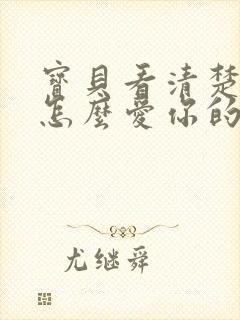 寶貝看清楚
怎麼愛你的
尤继舜